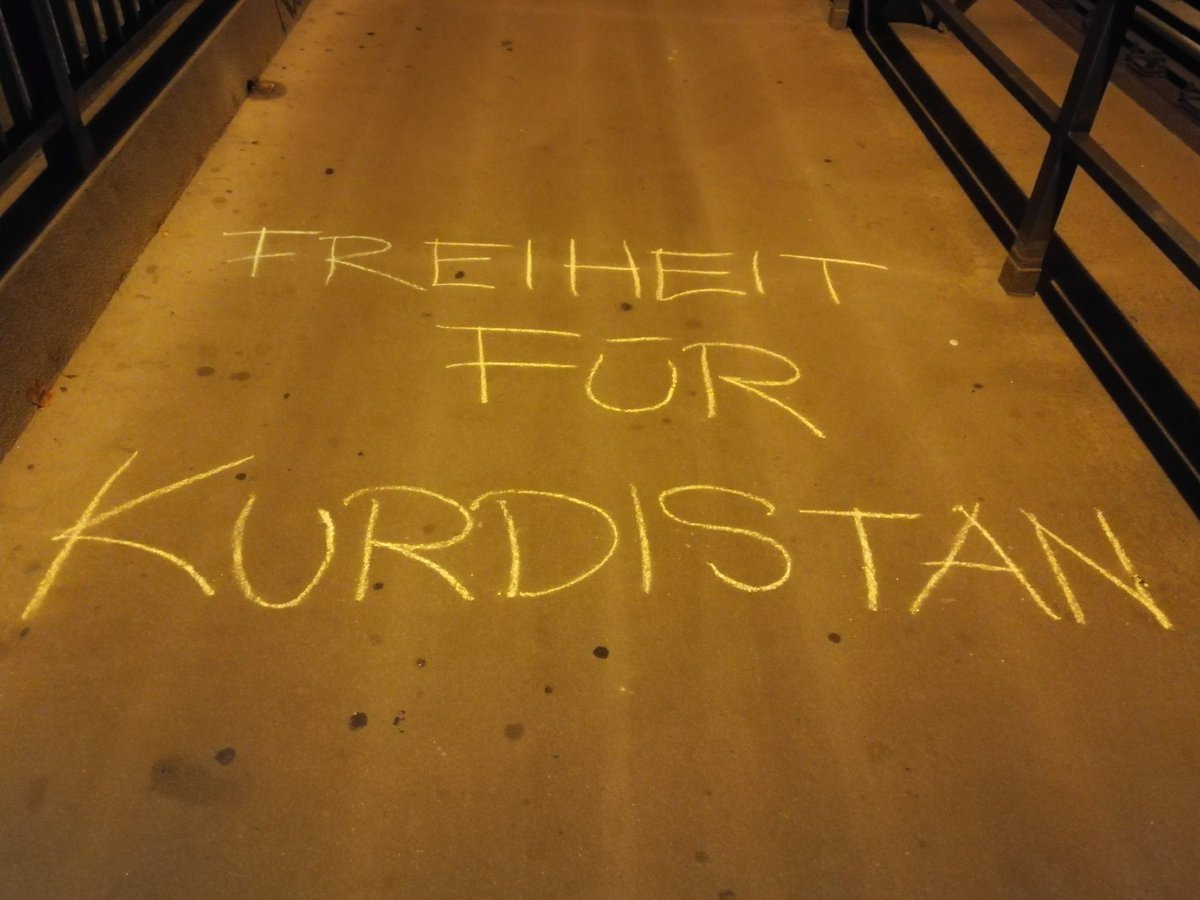 FREIHEIT
FÜR
KURDISTAN